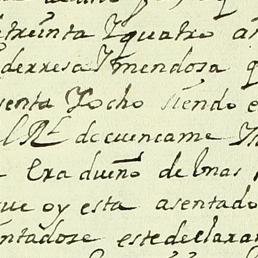 treinta y quatro añ
derresa y mendosa q
senta y ocho siendo e
l Rl. de cuencame y
e Era dueño de Unas
ue oy esta asentado
ntadose este declaran